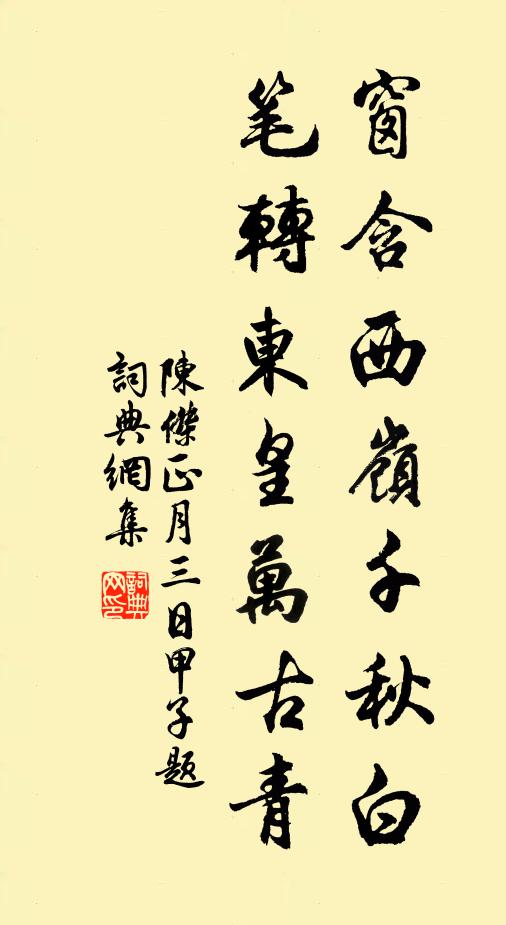 窗含西嶺千秋白
笔轉東皇萬古青
陳傑正月三日甲子題
詞典網集
詞典网印